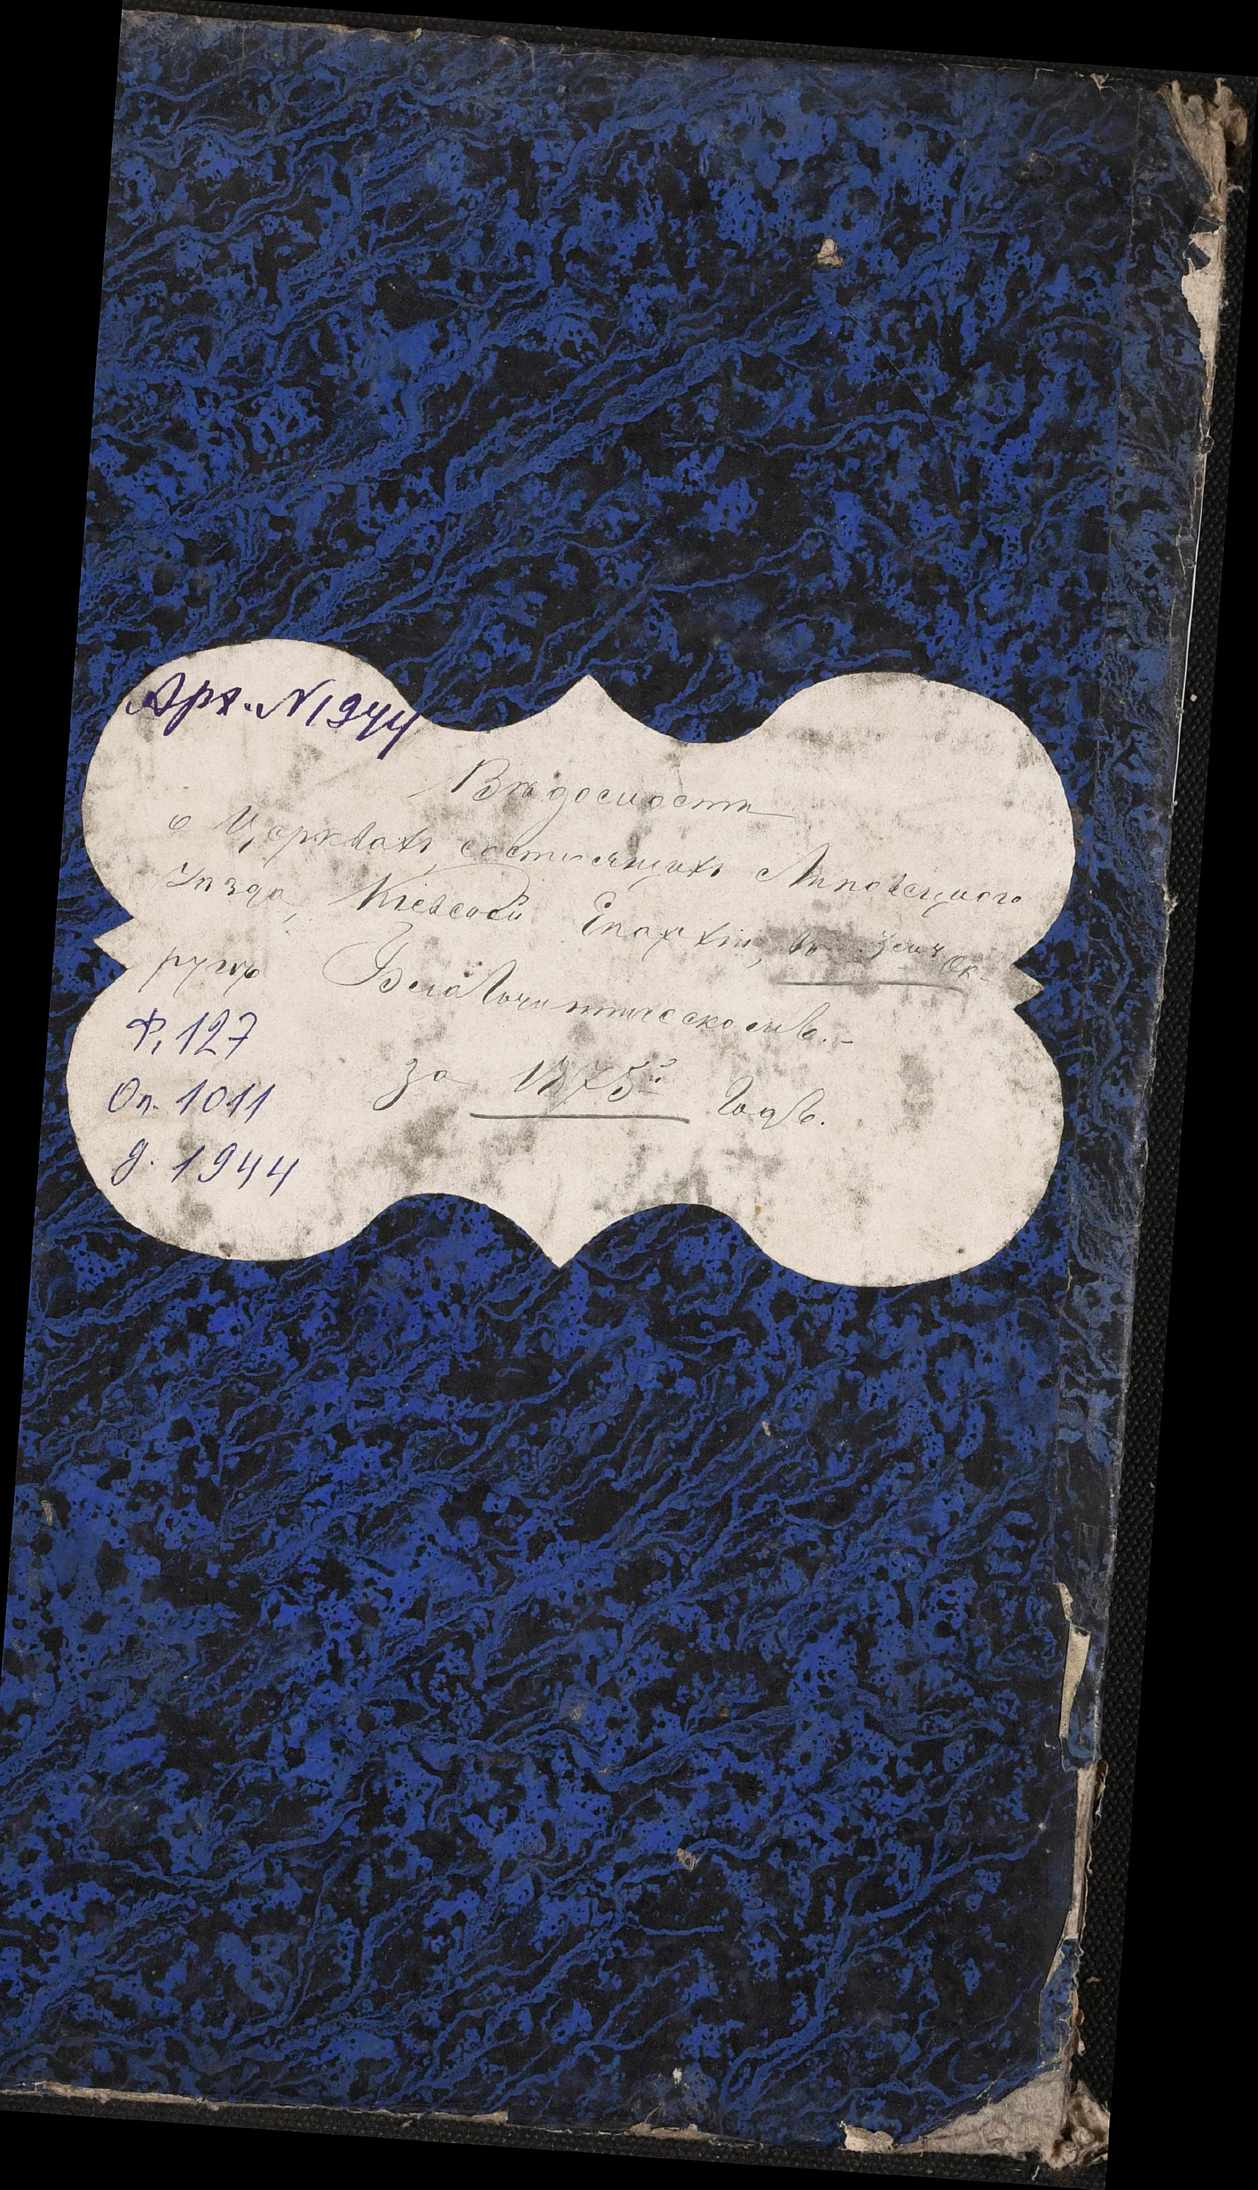 Арх. N 1944
Вѣдомости
о Церквахъ, состоящихъ Липовецкаго
Уѣзда, Кіевской Епархіи, въ 3емъ Ок-
ругѣ Благочинническомъ.-
за 1875й годъ.
Ф. 127
Оп. 1011
д. 1944